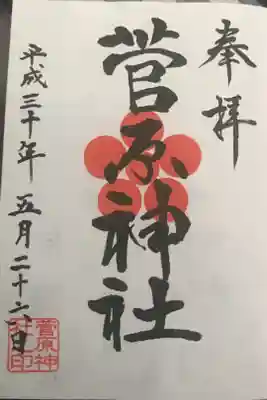 奉拝
菅原神社
平成三十年 五月二十六日
菅原神社印